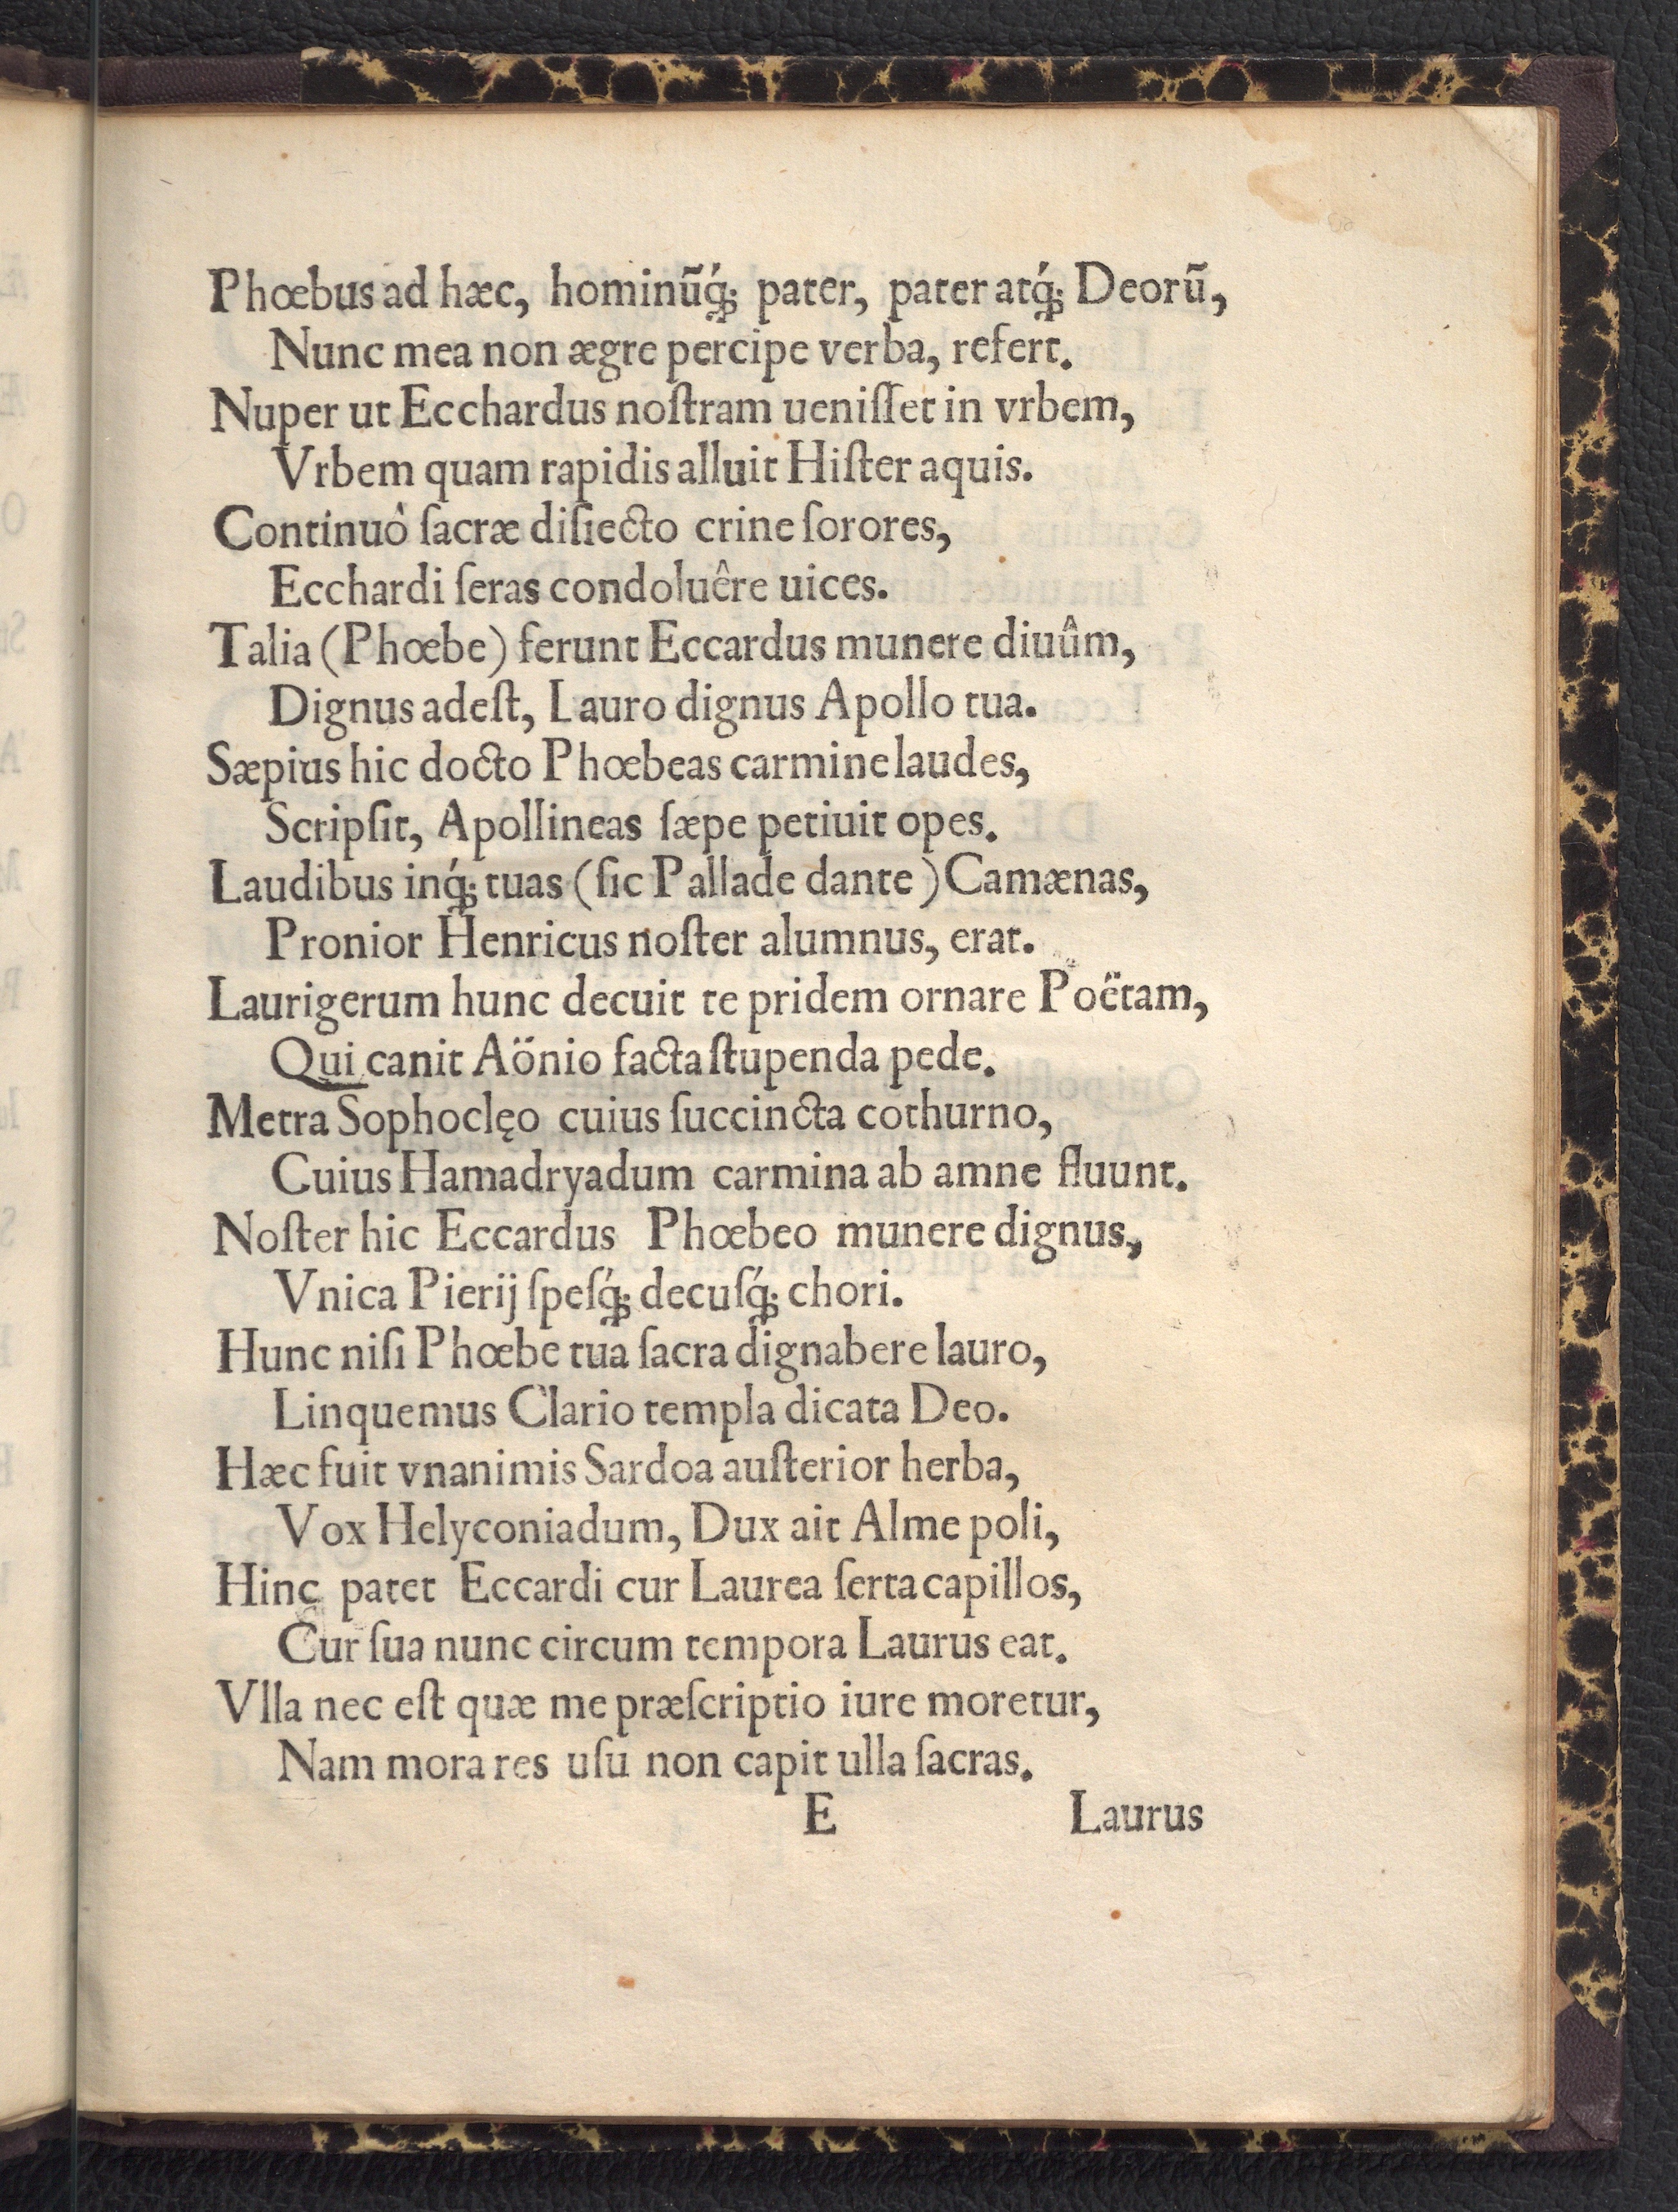 Phœbus ad hæc, hominũq́; pater, pater atq́; Deorũ,
Nunc mea non ægre percipe verba, refert.
Nuper ut Ecchardus noſtram ueniſſet in vrbem,
Vrbem quam rapidis alluit Hiſter aquis.
Continuò ſacræ diſiecto crine ſorores,
Ecchardi ſeras condoluêre uices.
Talia (Phœbe) ferunt Eccardus munere diuûm,
Dignus adeſt, Lauro dignus Apollo tua.
Sæpius hic docto Phœbeas carmine laudes,
Scripſit, Apollineas ſæpe petiuit opes.
Laudibus inq́; tuas (ſic Pallade dante) Camænas,
Pronior Henricus noſter alumnus, erat.
Laurigerum hunc decuit te pridem ornare Poëtam,
Qui canit Aönio facta ſtupenda pede.
Metra Sophoclęo cuius ſuccincta cothurno,
Cuius Hamadryadum carmina ab amne fluunt.
Noſter hic Eccardus Phœbeo munere dignus,
Vnica Pierij ſpeſq́; decuſq́; chori.
Hunc niſi Phœbe tua ſacra dignabere lauro,
Linquemus Clario templa dicata Deo.
Hæc fuit vnanimis Sardoa auſterior herba,
Vox Helyconiadum, Dux ait Alme poli,
Hinc patet Eccardi cur Laurea ſerta capillos,
Cur ſua nunc circum tempora Laurus eat.
Vlla nec eſt quæ me præſcriptio iure moretur,
Nam mora res uſu non capit ulla ſacras.
E Laurus